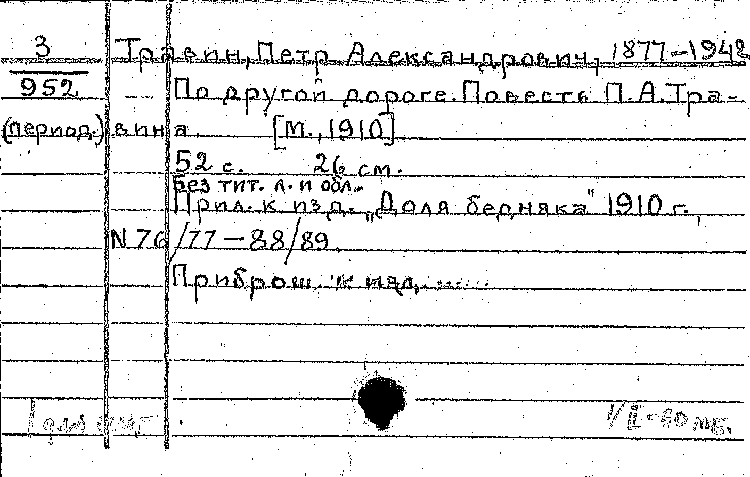 3 Травин, Петр Александрович, 1877-1942
952 По другой дороге. Повесть П.А.Тра-
(период.) вина. [М., 1910]
52 с. 26 см.
Без тит. л. и обл.
Прил. к изд. „Доля бедняка" 1910 г.,
N 76/77-88/89.
Приброш. к изд.